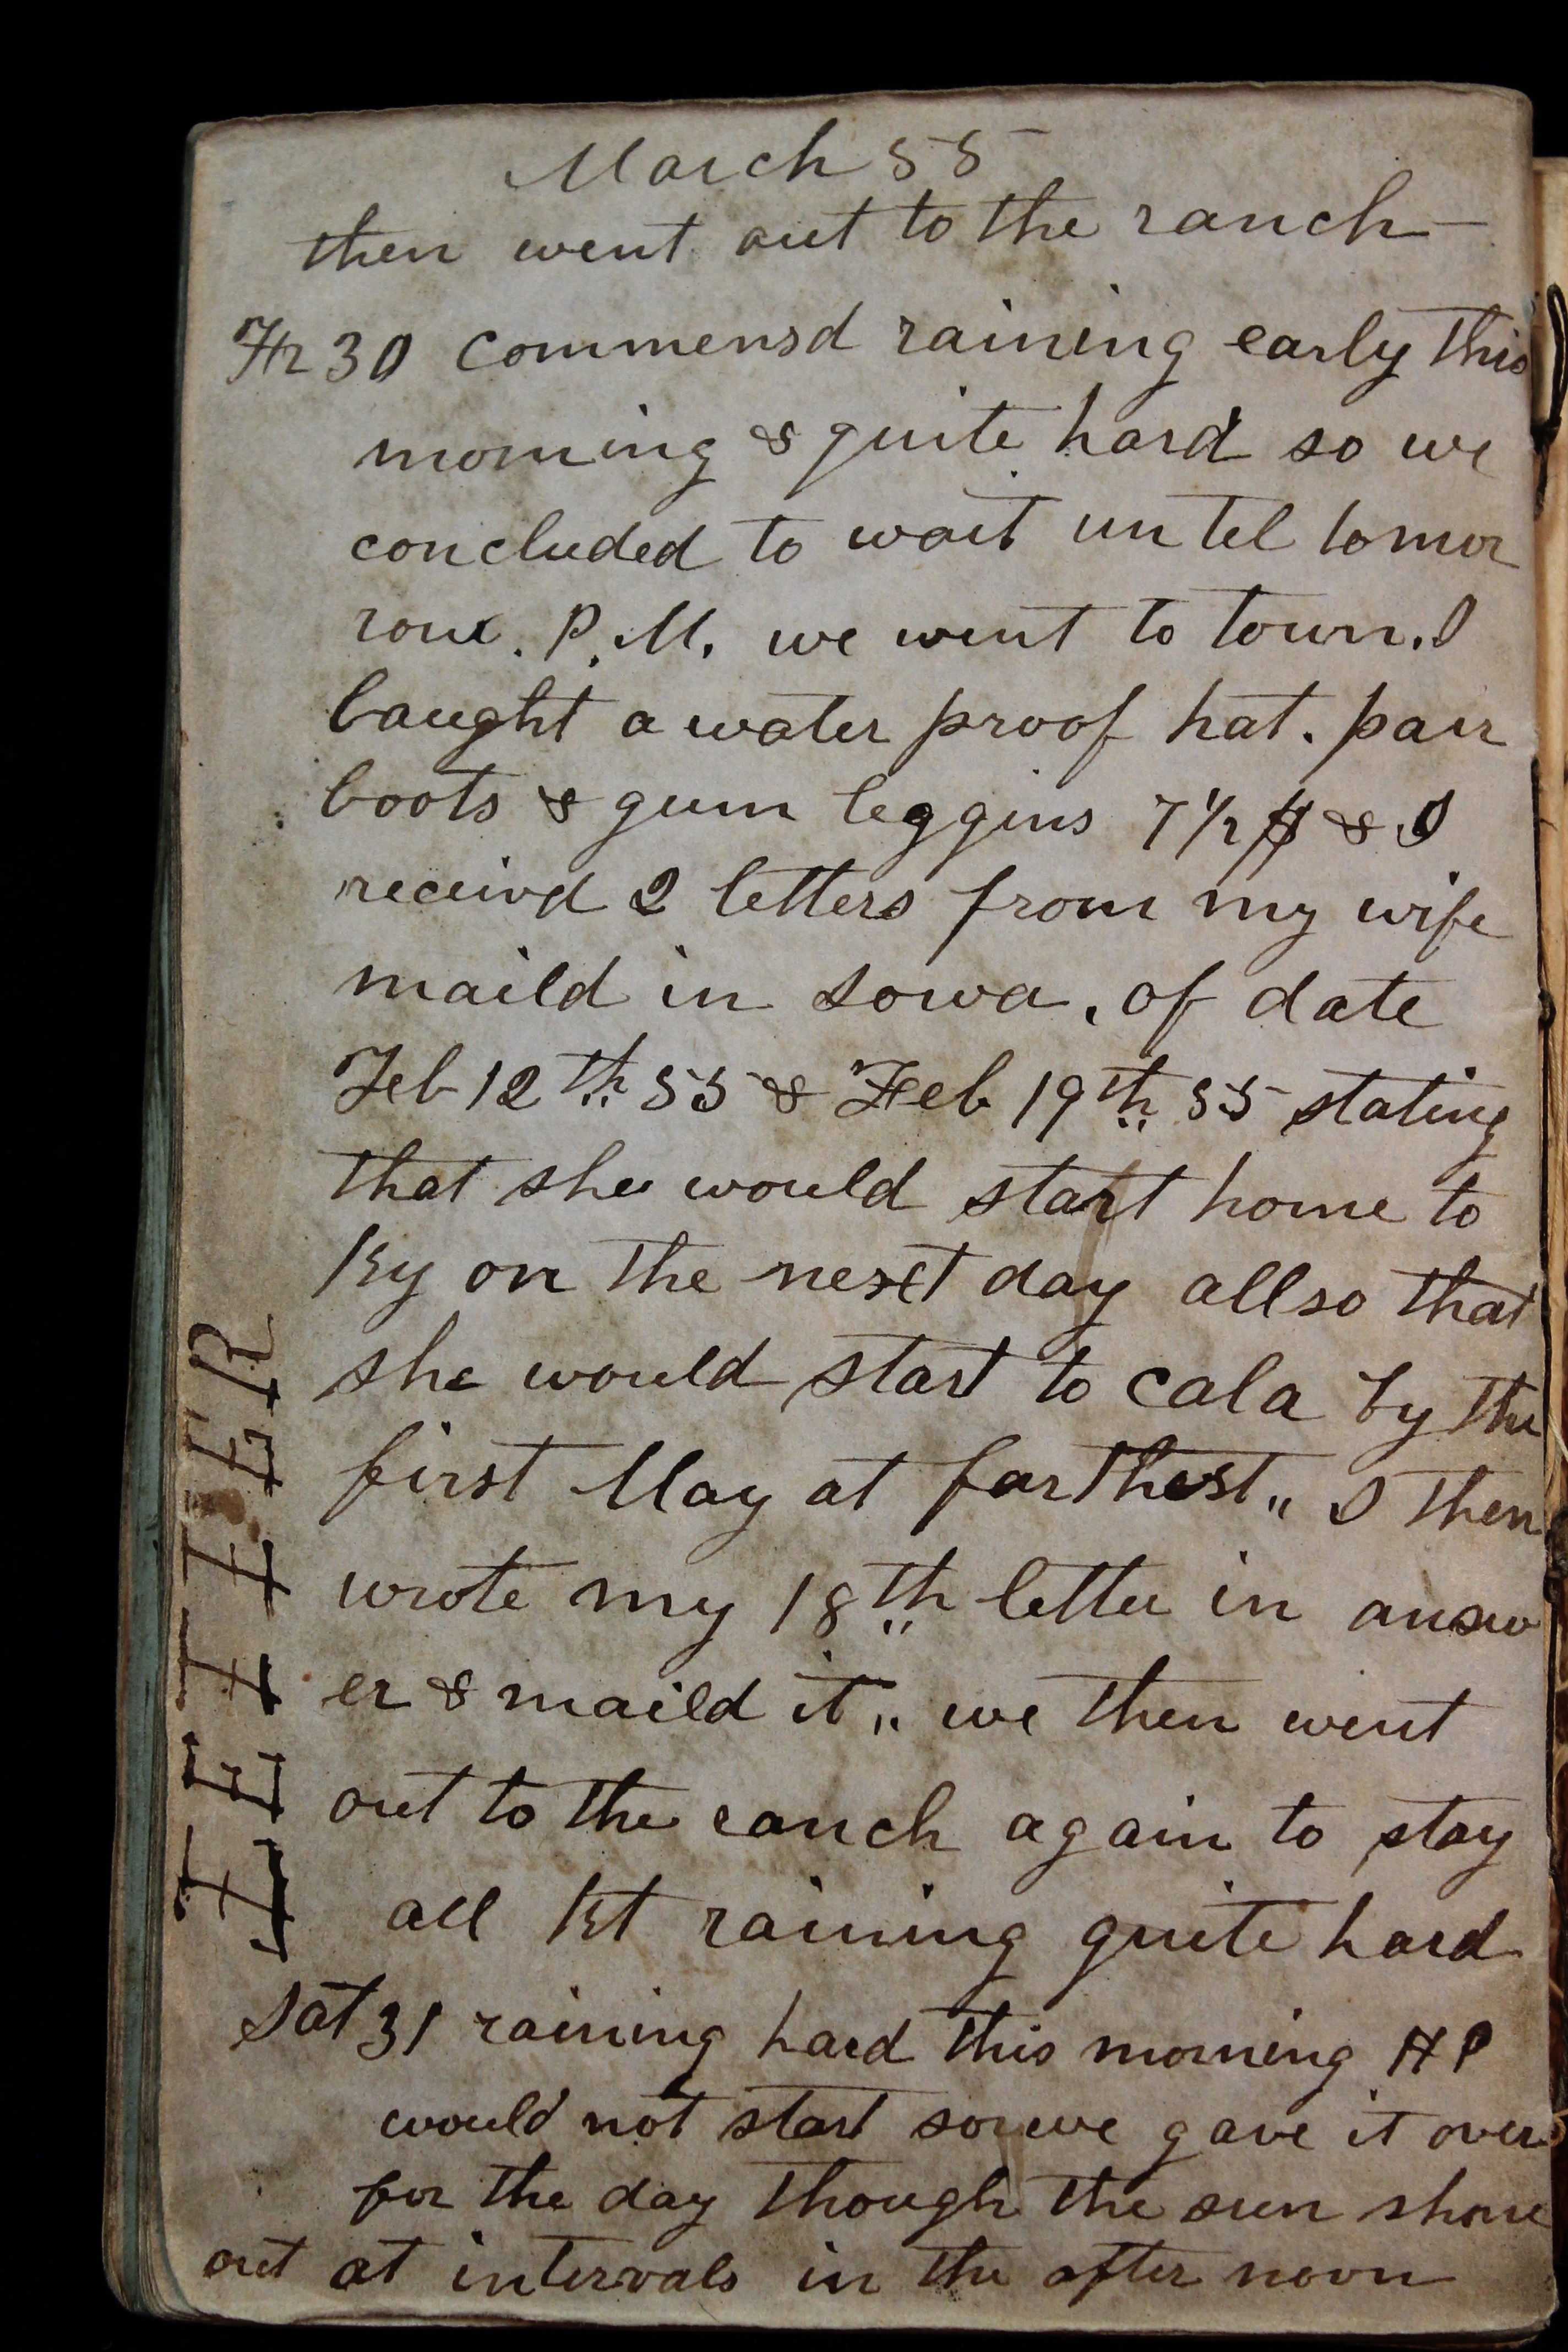 March 55
then went out to the ranch —
Fr 30 commensd raining early this
morning & quite hard so we
concluded to wait un tel tomor
row. P.M. we went to town. I
baught a water proof hat. pair
boots & gum leggins 7 1/2 $ & I
receivd 2 letters from my wife
maild in Iowa, of date
Feb 12th 55 & Feb 19th 55 stating
that she would start home to
Ky on the next day allso that
she would start to cala by the
first May at farthest " I then
wrote my 18th letter in answ
er & maild it " we then went
out to the ranch again to stay
all Nt raining quite hard
Sat 31 raining hard this morning HP
would not start so we gave it over
for the day though the sun shone
out at intervals in the after noon
LETTER